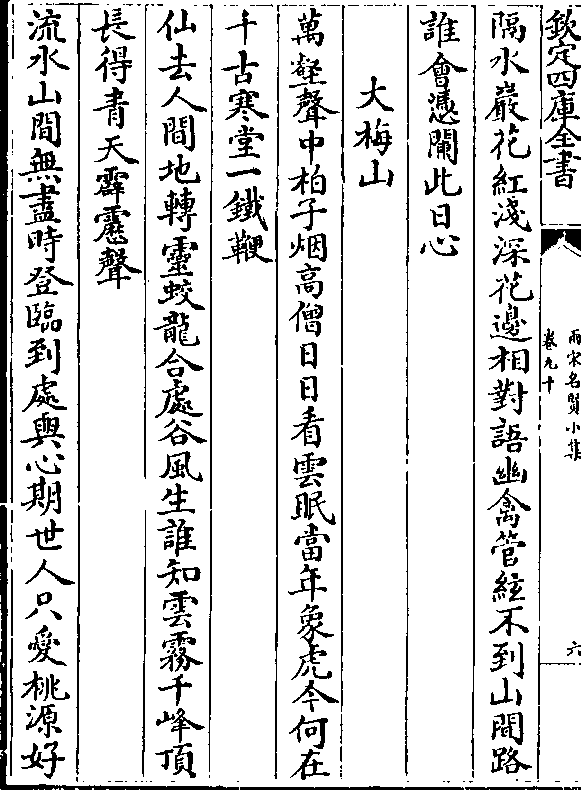 欽定四庫全書
兩宋名賢小集
卷九十
六
隔水巖花紅淺深花邊相對語幽禽管絃不到山間路
誰會憑闌此日心
大梅山
萬壑聲中柏子烟高僧日日看雲眠當年象虎今何在
千古寒堂一鐵鞭
仙去人間地轉靈蛟龍合處谷風生誰知雲霧千峰頂
長得青天霹靂聲
流水山間無盡時登臨到處與心期世人只愛桃源好